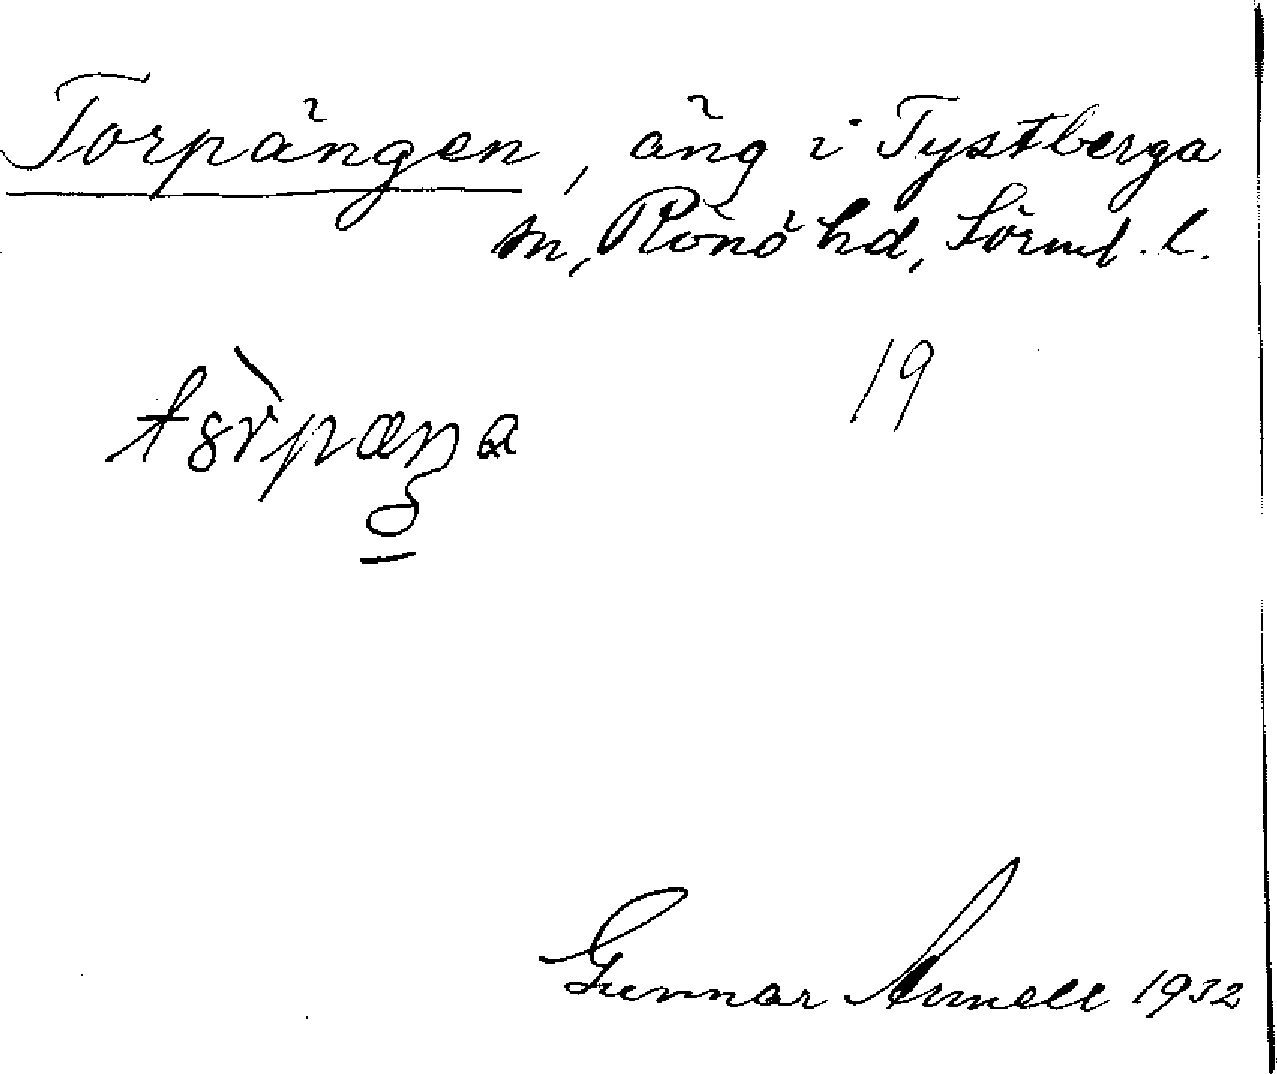 Torpängen, äng i Tystberga
sn, Rönö hd, Sörml. l.
19
Gunnar Arnell 1932